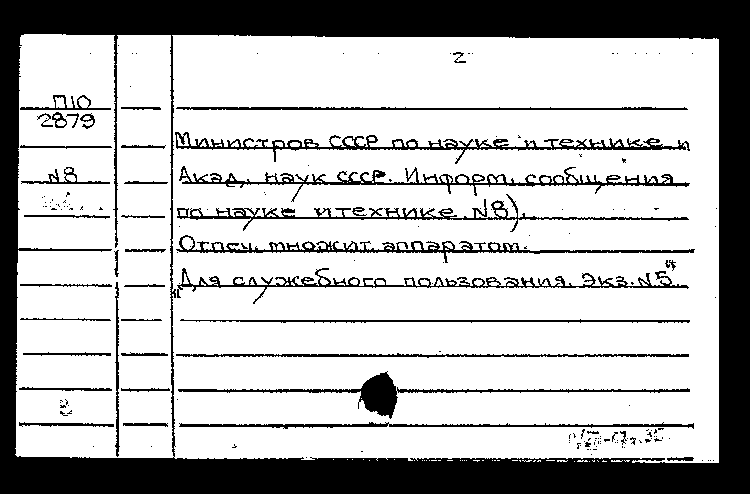 2
П10
2879
№8
Министров СССР по науке и технике и
Акад. наук СССР. Информ. сообщения
по науке и технике №8).
Отпеч. множит. аппаратом.
"Для служебного пользования. Экз. №5"
В